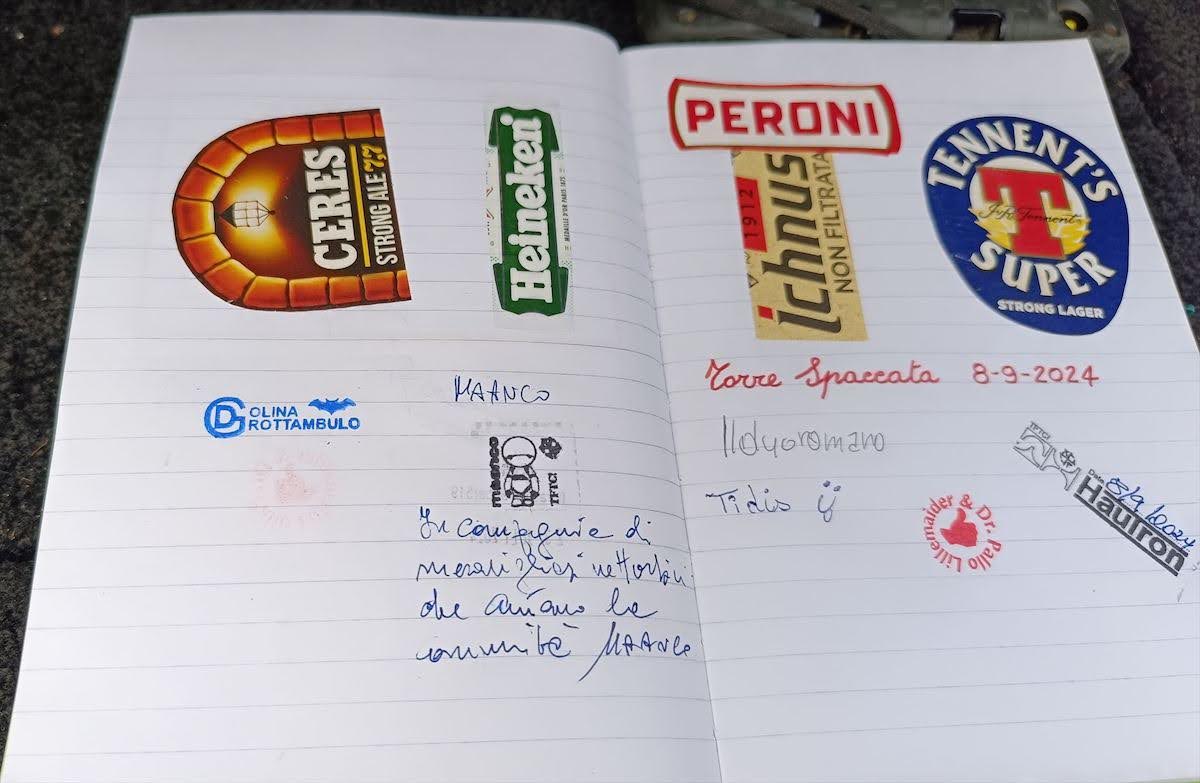 CERES
STRONG ALE 7,7
Heineken
MEDAILLE D'OR PARIS 1875
DG
OLINA
ROTTAMBULO
MAANCO
maanco
TFTC!
In compagnia di
che amano la
comunità MAANCO
PERONI
1912
ichnusa
NON FILTRATA
TENNENT'S
T
SUPER
STRONG LAGER
Torre Spaccata 8-9-2024
Ilduoromano
Tidis
Lillemaider & Dr. Pallo
TFTC!
Data 8/9/2024
Hauiron